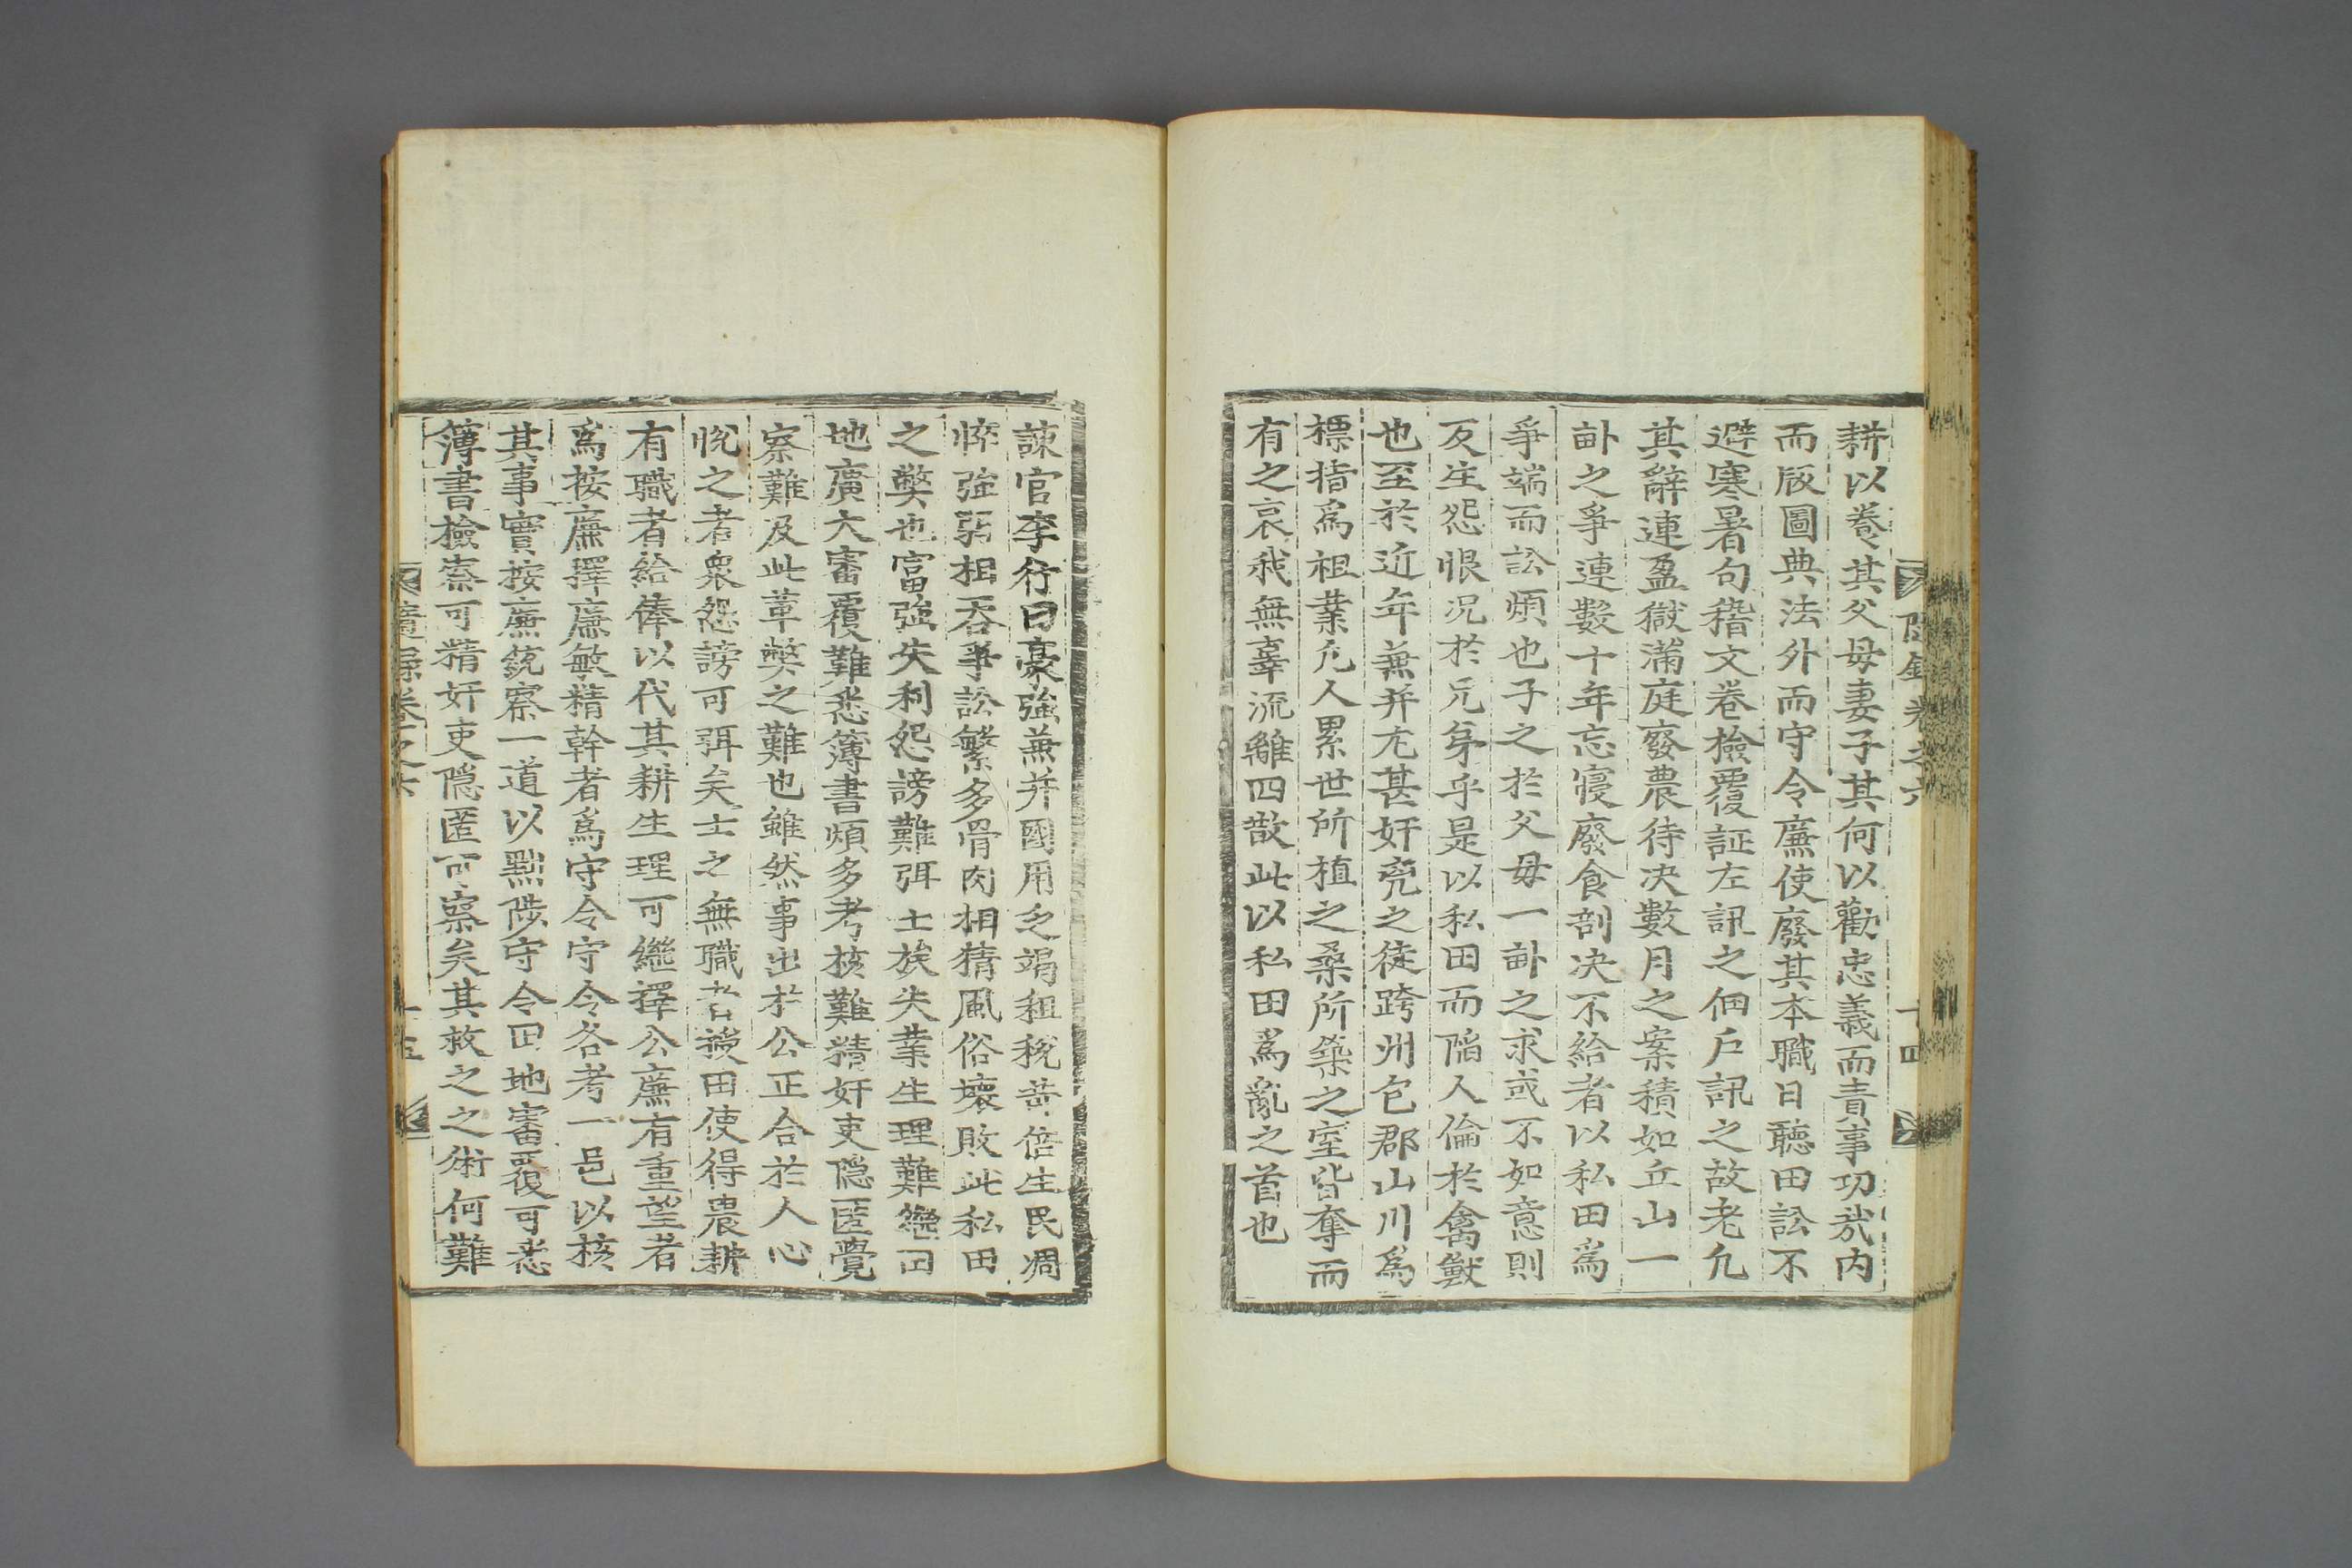 耕以養其父母妻子其何以勸忠義而責事功㢤内
而版圖典法外而守令廉使廢其本職日聽田訟不
避寒暑句稽文卷檢覆証左訊之佃戶訊之故老凢
其辭連盈獄滿庭廢農待决數月之案積如丘山一
畝之爭連數十年忘寢廢食剖决不給者以私田爲
爭端而訟煩也子之於父母一畝之求或不如意則
反生怨恨况於兄弟乎是以私田而陷人倫於禽獸
也至於近年兼并尤甚奸兇之徒跨州包郡山川爲
標指爲祖業凢人累世所植之桑所築之室皆奪而
有之哀我無辜流離四散此以私田爲亂之首也
卷之六
十四
諫官李行曰豪強兼并國用乏竭租稅苛倍生民凋
悴強弱相吞爭訟繁多骨肉相猜風俗壞敗此私田
之獘也富強失利怨謗難弭士族失業生理難繼田
地廣大審覆難悉簿書煩多考核難精奸吏隱匿覺
察難及此革獘之難也雖然事出於公正合於人心
恱之者衆怨謗可弭矣士之無職者授田使得農耕
有職者給俸以代其耕生理可繼擇公廉有重望者
爲按廉擇廉敏精幹者爲守令守令各考一邑以核
其事實按廉統察一道以黜陟守令田地審覆可悉
簿書檢察可精奸吏隱匿可察矣其救之之術何難
卷之六
十五